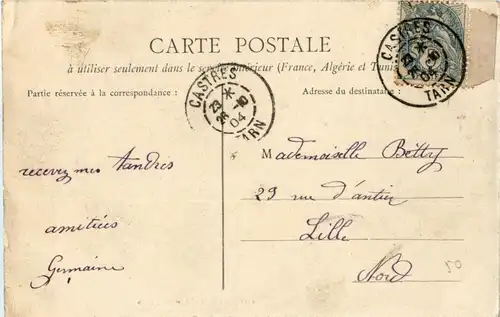 CARTE POSTALE
à utiliser seulement dans le service intérieur (France, Algérie et Tunis
Partie réservée à la correspondance :
Adresse du destinataire :
CASTRES
23 * 10
26
04
TARN
CASTRES
*
23
04
TARN
recevez mes tendres
amitiées
Germaine
Mademoiselle Betty
29 rue d'antin
Lille
Nord
50